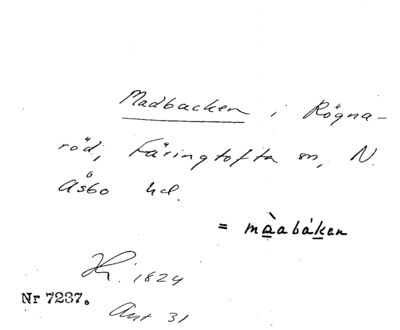 Madbacken i Rögna-
röd, Färingtofta sn, N.
Åsbo hd.
= màabáken
Hi. 1824
Nr 7237.
Ant 31